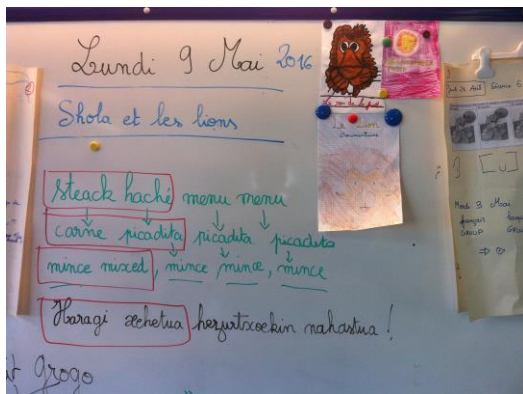 Lundi 9 Mai 2016
Shola et les lions
Steack haché menu menu
carne picadita picadita picadita
mince mixed, mince mince, mince
Haragi xehetua hezurtxoekin nahastua !
Grogo
Le Lion
Mardi 3 Mai